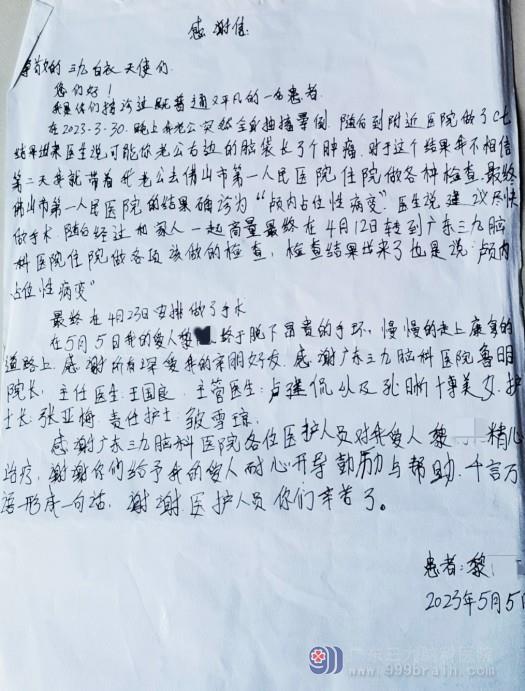 感谢信
尊敬的三九白衣天使们.
您们好!
我是你们接诊过既普通又平凡的一名患者
在2023.3.30.晚上我老公突然全身抽搐晕倒.随后到附近医院做了CT
结果出来医生说可能你老公右边的脑袋长了个肿瘤.对于这个结果我不相信
第二天我就带着我老公去佛山市第一人民医院住院做各种检查.最终
佛山市第一人民医院的结果确诊为"颅内占位性病变".医生说建议尽快
做手术.随后经过和家人一起商量最终在4月12日转到广东三九脑
科医院住院做各项该做的检查,检查结果出来了也是说:"颅内
占位性病变"
最终在4月23日安排做了手术
在5月5日我的爱人黎 终于脱下昂贵的手环,慢慢的走上康复的
道路上.感谢所有深爱我的亲朋好友.感谢广东三九脑科医院鲁明
院长,主任医生:王国良.主管医生:卢建侃以及孔 博美女.护
士长:张亚梅.责任护士:邹雪琼.
感谢广东三九脑科医院各位医护人员对我爱人黎 精心
治疗,谢谢你们给予我的爱人耐心开导鼓励与帮助.千言万
语形成一句话,谢谢医护人员你们辛苦了。
患者:黎
2023年5月5日
广东三九脑科医院
www.999brain.com